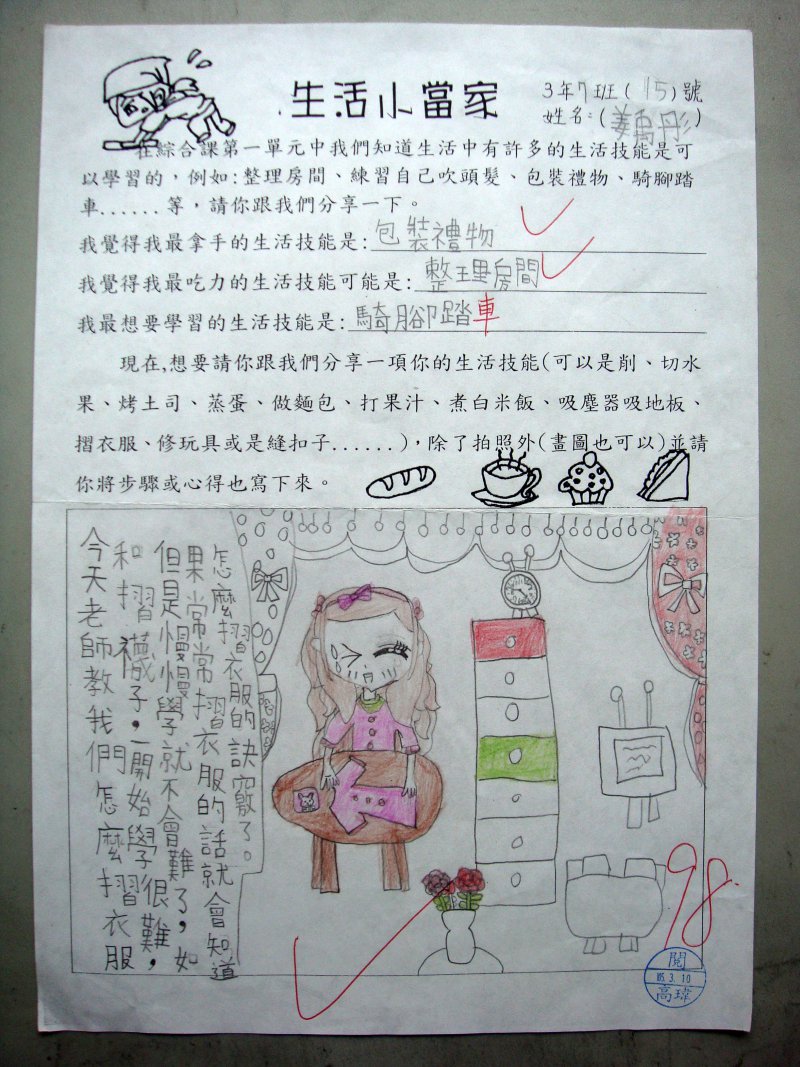 生活小當家
3年7班(15)號
姓名:(姜禹彤)
在綜合課第一單元中我們知道生活中有許多的生活技能是可
以學習的，例如:整理房間、練習自己吹頭髮、包裝禮物、騎腳踏
車......等，請你跟我們分享一下。
我覺得我最拿手的生活技能是:包裝禮物
我覺得我最吃力的生活技能可能是:整理房間
我最想要學習的生活技能是:騎腳踏車
現在,想要請你跟我們分享一項你的生活技能(可以是削、切水
果、烤土司、蒸蛋、做麵包、打果汁、煮白米飯、吸塵器吸地板、
摺衣服、修玩具或是縫扣子......)，除了拍照外(畫圖也可以)並請
你將步驟或心得也寫下來。
今天老師教我們怎麼摺衣服
和摺襪子，一開始學很難，
但是慢慢學就不會難了，如
果常常摺衣服的話就會知道
怎麼摺衣服的訣竅了。
98
閱
3.10
高瑋